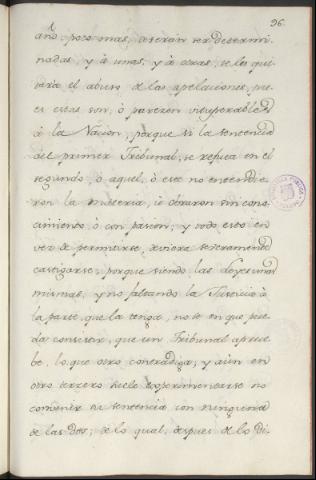 96.
año, poco mas, deverán ser determi-
nadas, y à unas, y à otras, se les qui-
taría el abuso de las apelaciones, pues
estas son, ò parecen vituperables
à la Nacion, porque si la sentencia
del primer Tribunal, se refuta en el
segundo, ò aquel, ò este no entendie-
ron la materia, ù obraron sin cono-
cimiento, ò con pasion; y todo esto en
vez de permitirse, deviera severamente
castigarse; porque siendo las Leyes unas
mismas, y no faltando la Justicia à
la parte que la tenga, no se en que pue-
da consistir, que un Tribunal aprue-
be, lo que otro contradiga, y aùn en
otro tercero suele experimentarse no
convenir su sentencia con ninguna
de las dos; de lo qual, despues de lo di-